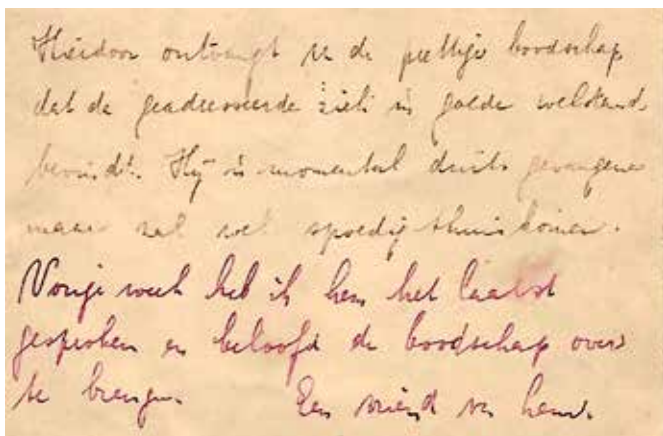 Hierdoor ontvangt u de prettige boodschap
dat de geadresseerde zich in goede welstand
bevindt. Hij is momenteel duits gevangene
maar zal wel spoedig thuiskomen.
Vorige week heb ik hem het laatst
gesproken en beloofd de boodschap over
te brengen. Een vriend van hem.